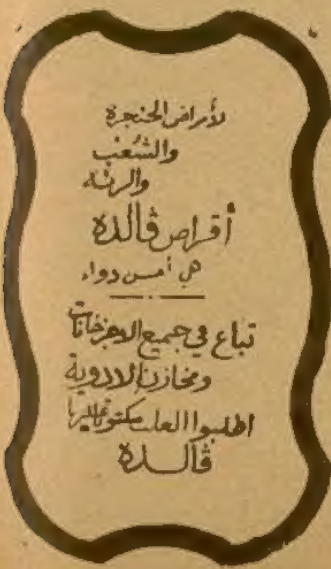 لأمراض الحنجرة
والشعب
والرئه
أقراص ڤالده
هي أحسن دواء
تباع في جميع الاجزخانات
ومخازن الادوية
اطلبوا العلب مكتوبا عليها
ڤالدة